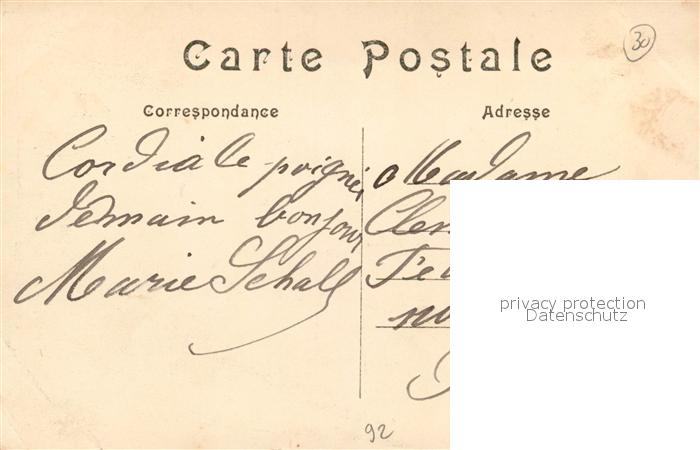 Carte Postale
30
Correspondance
Adresse
Cordiale poigné
demain bonjour
Marie Schall
Madame
Cler
privacy protection
Datenschutz
92